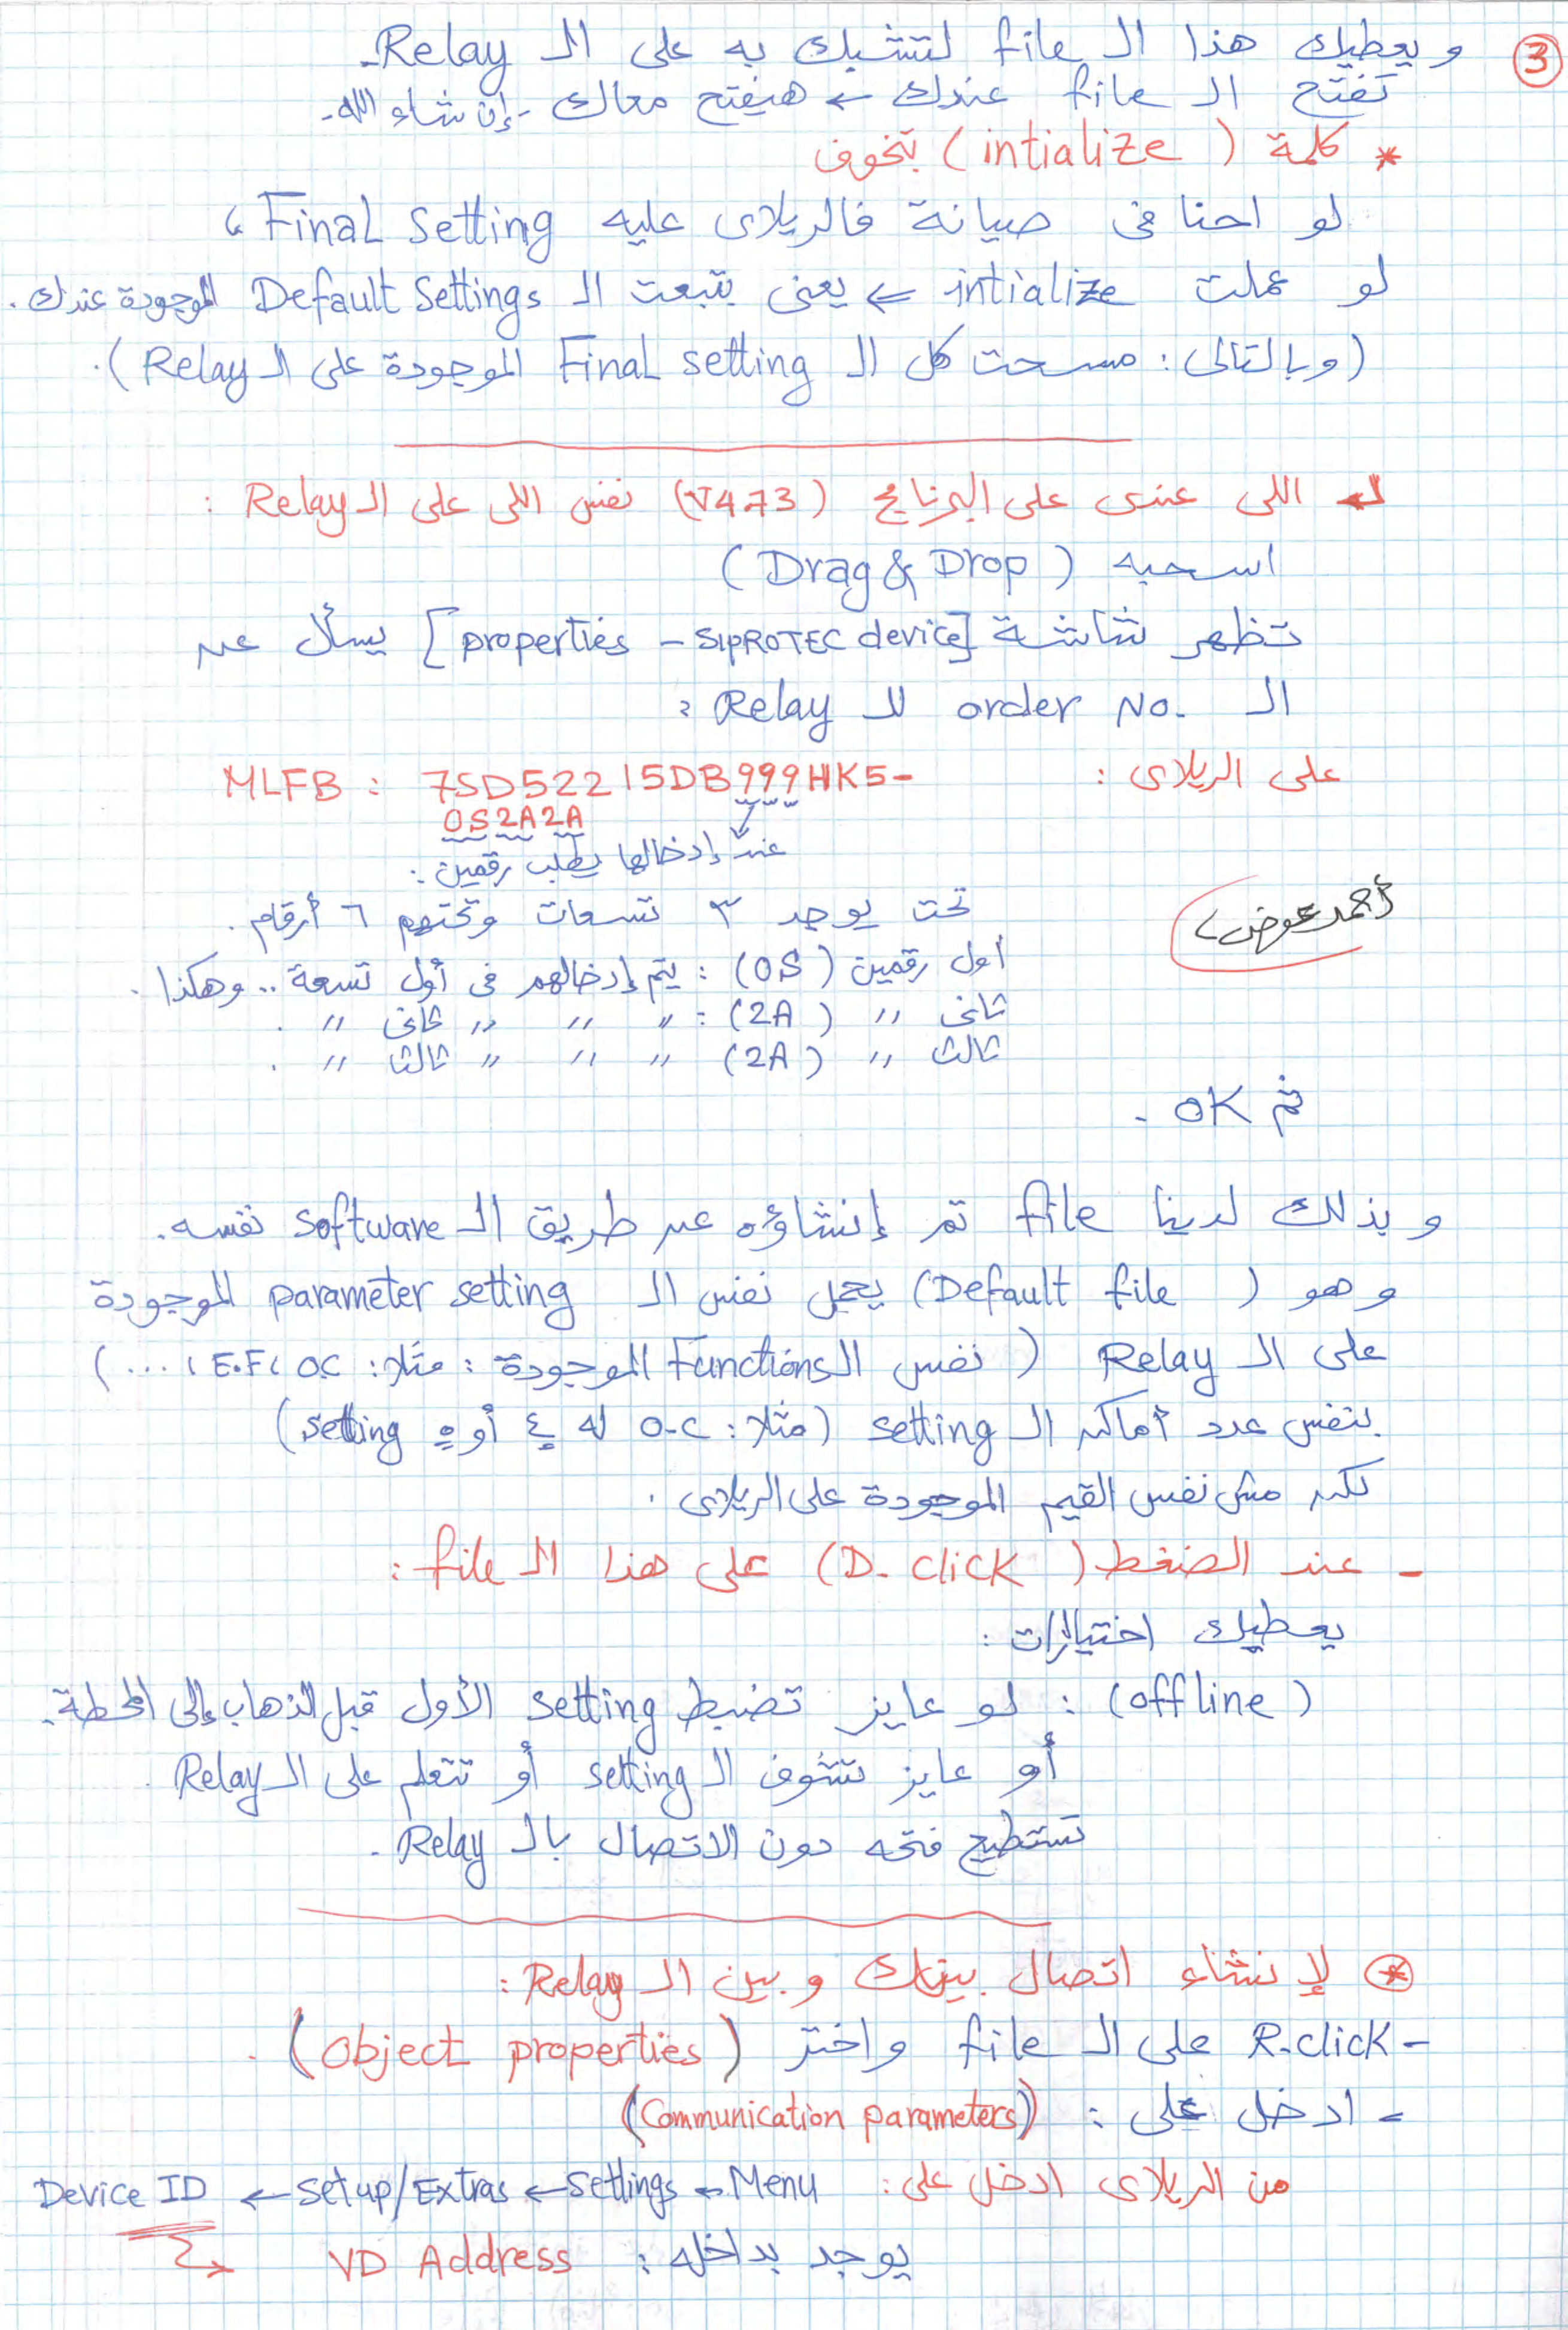 ③
و يعطيك هذا الـ file لتشبك به على الـ Relay.
تفتح الـ file عندك ← هيفتح معاك - إن شاء الله -.
* كلمة (intialize) بتخوف
لو احنا فى صيانة فالريلاى عليه Final setting ،
لو عملت intialize ⇐ يعنى بتبعت الـ Default Settings الموجودة عندك .
(وبالتالى : مسحت كل الـ Final setting الموجودة على الـ Relay) .
اللى عندى على البرنامج (V4.73) نفس اللى على الـ Relay :
اسحبه (Drag & Drop)
تظهر شاشة [properties - SIPROTEC device] يسأل عن
الـ order No. للـ Relay :
على الريلاى : MLFB : 7SD52215DB999HK5-
0S2A2A
عند إدخالها يطلب رقمين :
تحت يوجد ٣ تسعات وتحتهم ٦ أرقام .
أحمد عوض
أول رقمين (0S) : يتم إدخالهم فى أول تسعة .. وهكذا .
ثانى 〃 (2A) : 〃 〃 〃 ثانى 〃 .
ثالث 〃 (2A) 〃 〃 〃 ثالث 〃 .
ثم OK .
و بذلك لدينا file تم إنشاؤه عن طريق الـ software نفسه .
و هو (Default file) يحمل نفس الـ parameter setting الموجودة
على الـ Relay (نفس الـ Functions الموجودة : مثلا : O.C ، E.F ، ...)
بنفس عدد أماكن الـ setting (مثلا : O.C له ٤ أو ٥ setting)
لكن مش نفس القيم الموجودة على الريلاى .
- عند الضغط (D. click) على هذا الـ file :
يعطيك اختيارات :
(offline) : لو عايز تضبط setting الأول قبل الذهاب إلى المحطة .
أو عايز تشوف الـ setting أو تتعلم على الـ Relay .
تستطيع فتحه دون الاتصال بالـ Relay .
⊛ لإنشاء اتصال بينك و بين الـ Relay :
- R.click على الـ file واختر (object properties) .
- ادخل على : (Communication parameters)
من الريلاى ادخل على : Menu ← Settings ← Setup/Extras ← Device ID
يوجد بداخله : VD Address